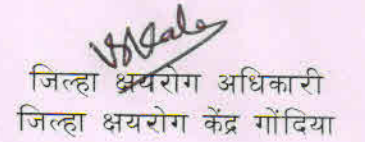 जिल्हा क्षयरोग अधिकारी
जिल्हा क्षयरोग केंद्र गोंदिया